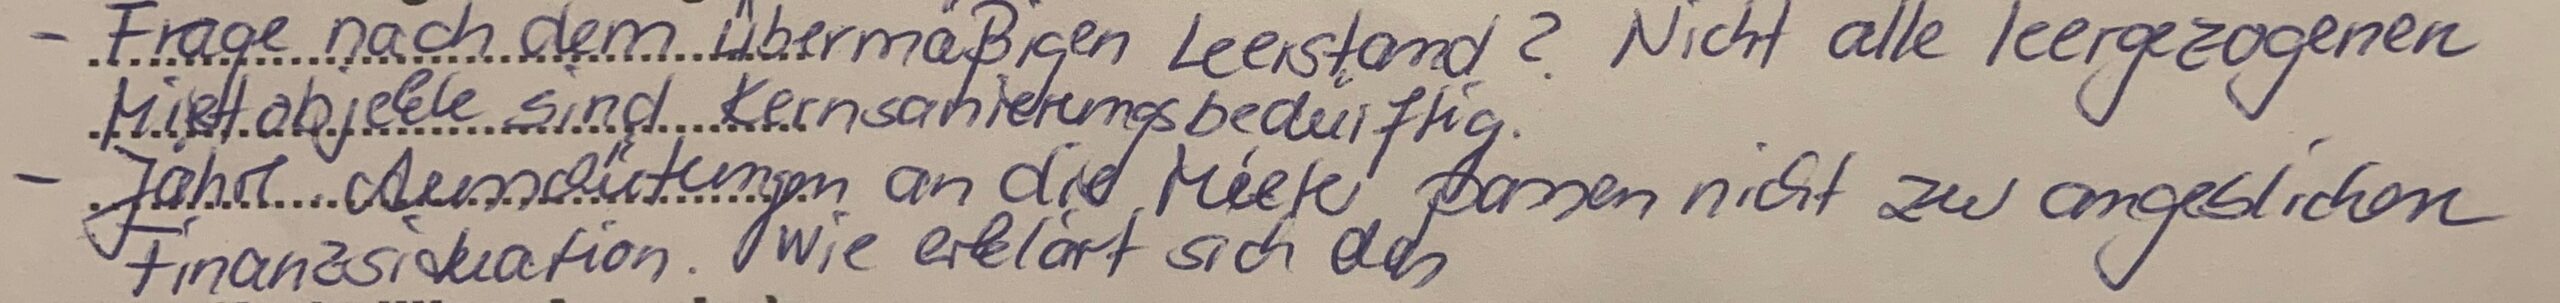 - Frage nach dem übermäßigen Leerstand? Nicht alle leergezogenen
Mietobjekte sind Kernsanierungsbedürftig.
- Jährl. Ausschüttungen an die Mieter passen nicht zur angeblichen
Finanzsituation. Wie erklärt sich das